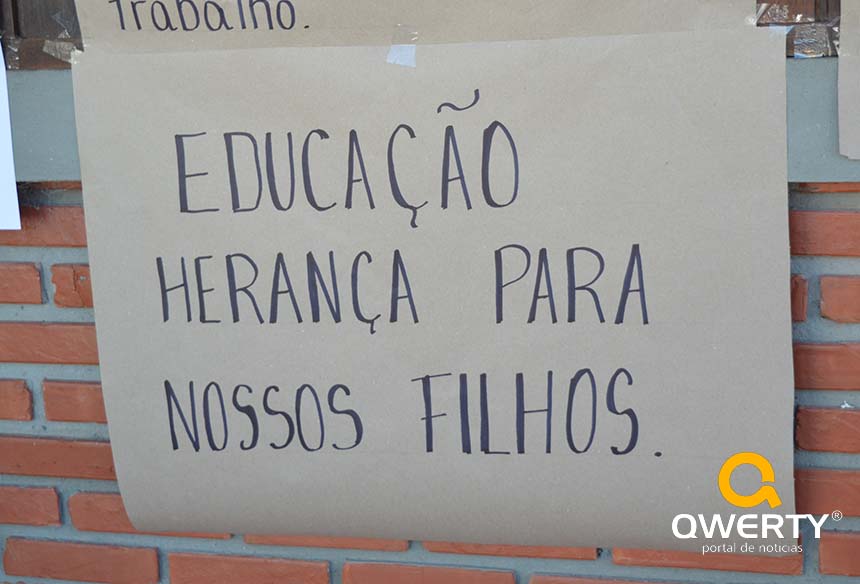 Trabalho.
EDUCAÇÃO
HERANÇA PARA
NOSSOS FILHOS.
QWERTY®
portal de notícias